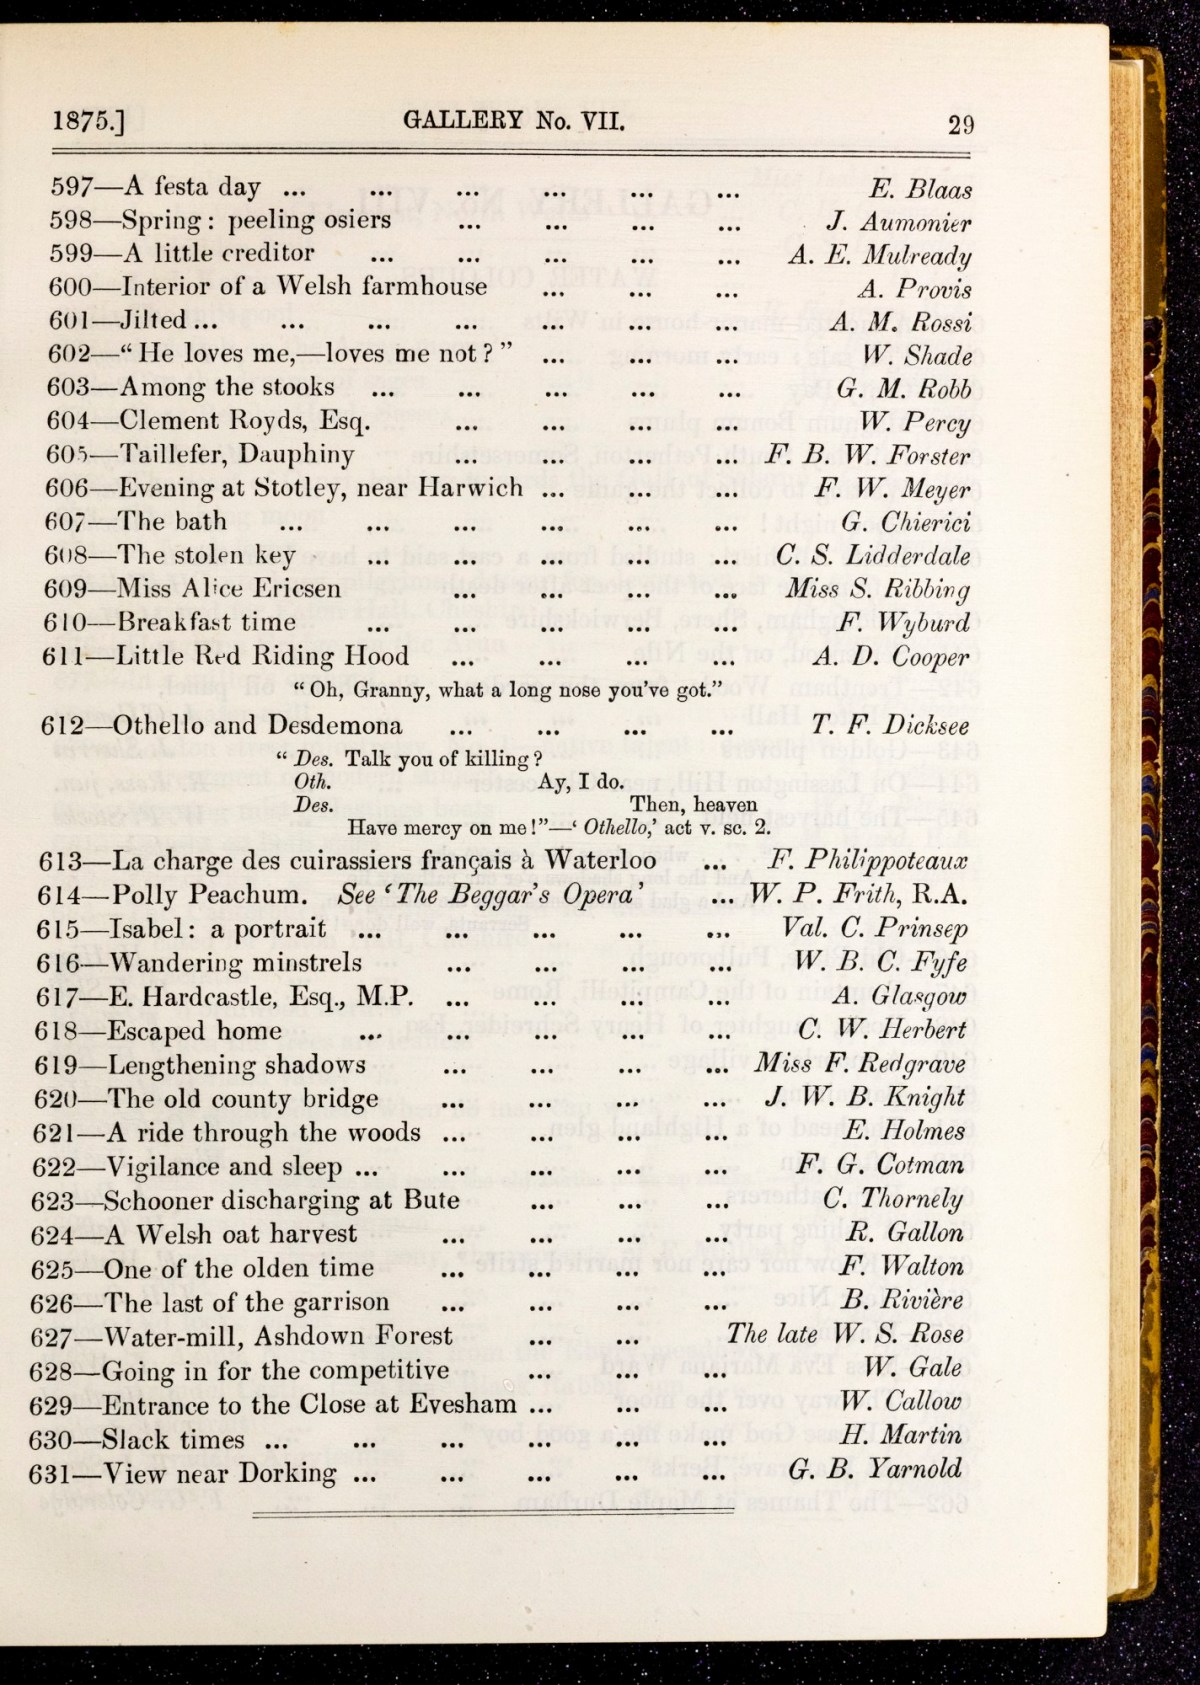 1875.] GALLERY No. VII. 29
597—A festa day ... ... ... ... ... ... E. Blaas
598—Spring: peeling osiers ... ... ... ... J. Aumonier
599—A little creditor ... ... ... ... ... A. E. Mulready
600—Interior of a Welsh farmhouse ... ... ... A. Provis
601—Jilted ... ... ... ... ... ... ... A. M. Rossi
602—“He loves me,—loves me not?” ... ... ... W. Shade
603—Among the stooks ... ... ... ... ... G. M. Robb
604—Clement Royds, Esq. ... ... ... ... W. Percy
605—Taillefer, Dauphiny ... ... ... ... F. B. W. Forster
606—Evening at Stotley, near Harwich ... ... ... F. W. Meyer
607—The bath ... ... ... ... ... ... G. Chierici
608—The stolen key ... ... ... ... ... C. S. Lidderdale
609—Miss Alice Ericsen ... ... ... ... Miss S. Ribbing
610—Breakfast time ... ... ... ... ... F. Wyburd
611—Little Red Riding Hood ... ... ... ... A. D. Cooper
“Oh, Granny, what a long nose you’ve got.”
612—Othello and Desdemona ... ... ... ... T. F. Dicksee
“Des. Talk you of killing?
Oth. Ay, I do.
Des. Then, heaven
Have mercy on me!”—‘Othello,’ act v. sc. 2.
613—La charge des cuirassiers français à Waterloo ... F. Philippoteaux
614—Polly Peachum. See ‘The Beggar’s Opera’ ... W. P. Frith, R.A.
615—Isabel: a portrait ... ... ... ... ... Val. C. Prinsep
616—Wandering minstrels ... ... ... ... W. B. C. Fyfe
617—E. Hardcastle, Esq., M.P. ... ... ... ... A. Glasgow
618—Escaped home ... ... ... ... ... C. W. Herbert
619—Lengthening shadows ... ... ... ... Miss F. Redgrave
620—The old county bridge ... ... ... ... J. W. B. Knight
621—A ride through the woods ... ... ... ... E. Holmes
622—Vigilance and sleep ... ... ... ... ... F. G. Cotman
623—Schooner discharging at Bute ... ... ... C. Thornely
624—A Welsh oat harvest ... ... ... ... R. Gallon
625—One of the olden time ... ... ... ... F. Walton
626—The last of the garrison ... ... ... ... B. Rivière
627—Water-mill, Ashdown Forest ... ... The late W. S. Rose
628—Going in for the competitive ... ... ... W. Gale
629—Entrance to the Close at Evesham ... ... ... W. Callow
630—Slack times ... ... ... ... ... ... H. Martin
631—View near Dorking ... ... ... ... ... G. B. Yarnold